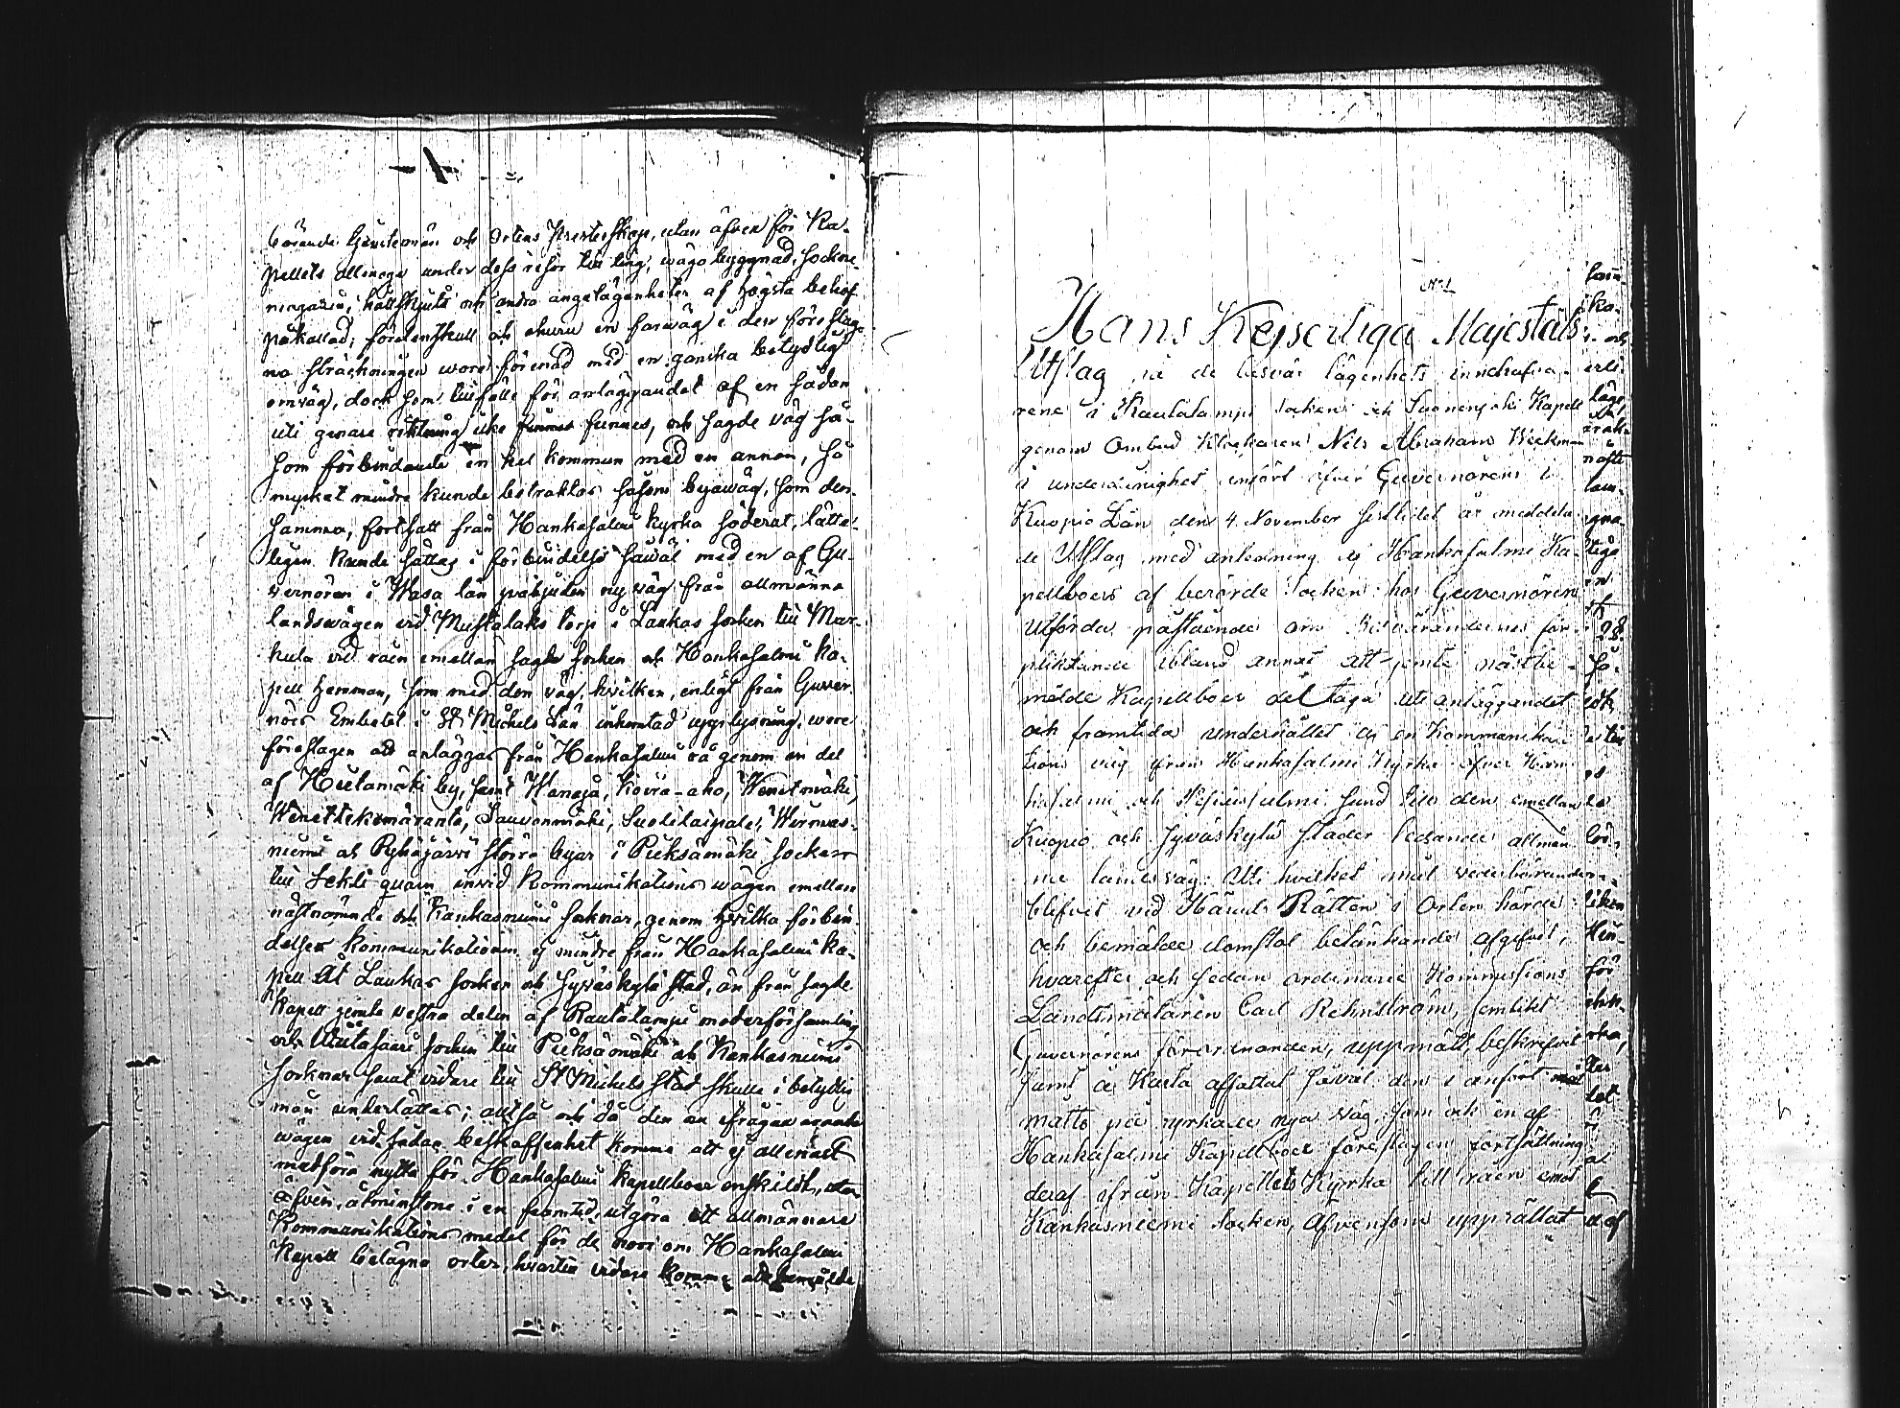 hörande tjenstemän och ortens Presterskap, utan äfven för Ka-
pellets allmoge under dess resor till ting, wägabyggnad, Socken-
magazin, hållskjuts och andra angelägenheter af högsta behof
påkallad; fördenskull och ehuru en farwäg i den föreslag-
na sträckningen wore förenad med en ganska betydlig
omväg, dock som tillfälle för anläggandet af en sådan
uti genare riktning icke funnes, och sagde väg så-
som förbindande en hel kommun med en annan, så
mycket mindre kunde betraktas såsom byawäg, som den-
samma, fortsatt från Hankasalmi kyrka söderut, lätte-
ligen kunde sättas i förbindelse såwäl med en af Gu-
vernören i Wasa län påbjuden ny väg från allmänna
landswägen vid Mustalaks torp i Laukas socken till Mar-
kula vid råen emellan sagde socken och Hankasalmi ka-
pell hemman, som med den väg, hvilken, enligt från Guver-
nörs Embetet i St Michels Län inhemtad upplysning, wore
föreslagen att anläggas från Hankasalmi rå genom en del
af Hietamäki by, samt Wanaja, Koira-aho, Wenetmäki,
Wenettekemäranta, Sauvonmäki, Suolitaipale,
och Pyhäjärvi större byar i Pieksämäki socken
till Sekli qvarn invid Kommunikations wägen emellan
nästnämnde och Kankasniemi socknar, genom hvilka förbin-
delser kommunikationen ej mindre från Hankasalmi ka-
pell åt Laukas socken och Jyväskylä stad, än från sagde
Kapell jemte vestra delen af Rautalampi moderförsamling
och socken till Pieksämäki och Kankasniemi
socknar samt vidare till St Michels stad skulle i betydlig
mån underlättas; alltså och då den nu ifrågavarande
wägen vid sådan beskaffenhet komme att ej allenast
medföra nytta för Hankasalmi kapellboer enskildt, utan
äfven, åtminstone i en framtid, utgöra ett allmännare
Kommunikations medel för de norr om Hankasalmi
Kapell belägna orter, hvartill vidare komme att
No 1
Hans Kejserliga Majestäts
Utslag på de besvär lägenhets innehafva-
rene i Rautalampi socken och Suonenjoki Kapell
genom Ombud Klockaren Nils Abraham Weckman
i underdånighet anfört öfver Guvernörens i
Kuopio Län den 4 November sistlidet år meddela-
de Utslag med anledning af Hankasalmi Ka-
pellboers af berörde socken hos Guvernören
utförda påstående om Besvärandernes för-
pliktande ibland annat att jemte nästbe-
mälde Kapellboer deltaga uti anläggandet
och framtida underhållet af en Kommunika-
tions väg från Hankasalmi Kyrka öfver
och sund till den emellan
Kuopio och Jyväskylä städer ledande allmän-
na landsväg: Uti hvilket mål vederbörande
blifvit vid Härads Rätten i Orten hörde
och bemälde domstol betänkande afgifvit,
hvarefter och sedan ordinarie Kommissions
Landtmätaren Carl Rehnström, jemlikt
Guvernörens förordnande, uppmätt, beskrifvit
samt å Karta affattat såväl den i anfört
måtto påyrkade nya väg, som ock en af
Hankasalmi Kapellboer föreslagen fortsättning
deraf ifrån Kapellets Kyrka till råen emot
Kankasniemi Socken, äfvensom upprättat